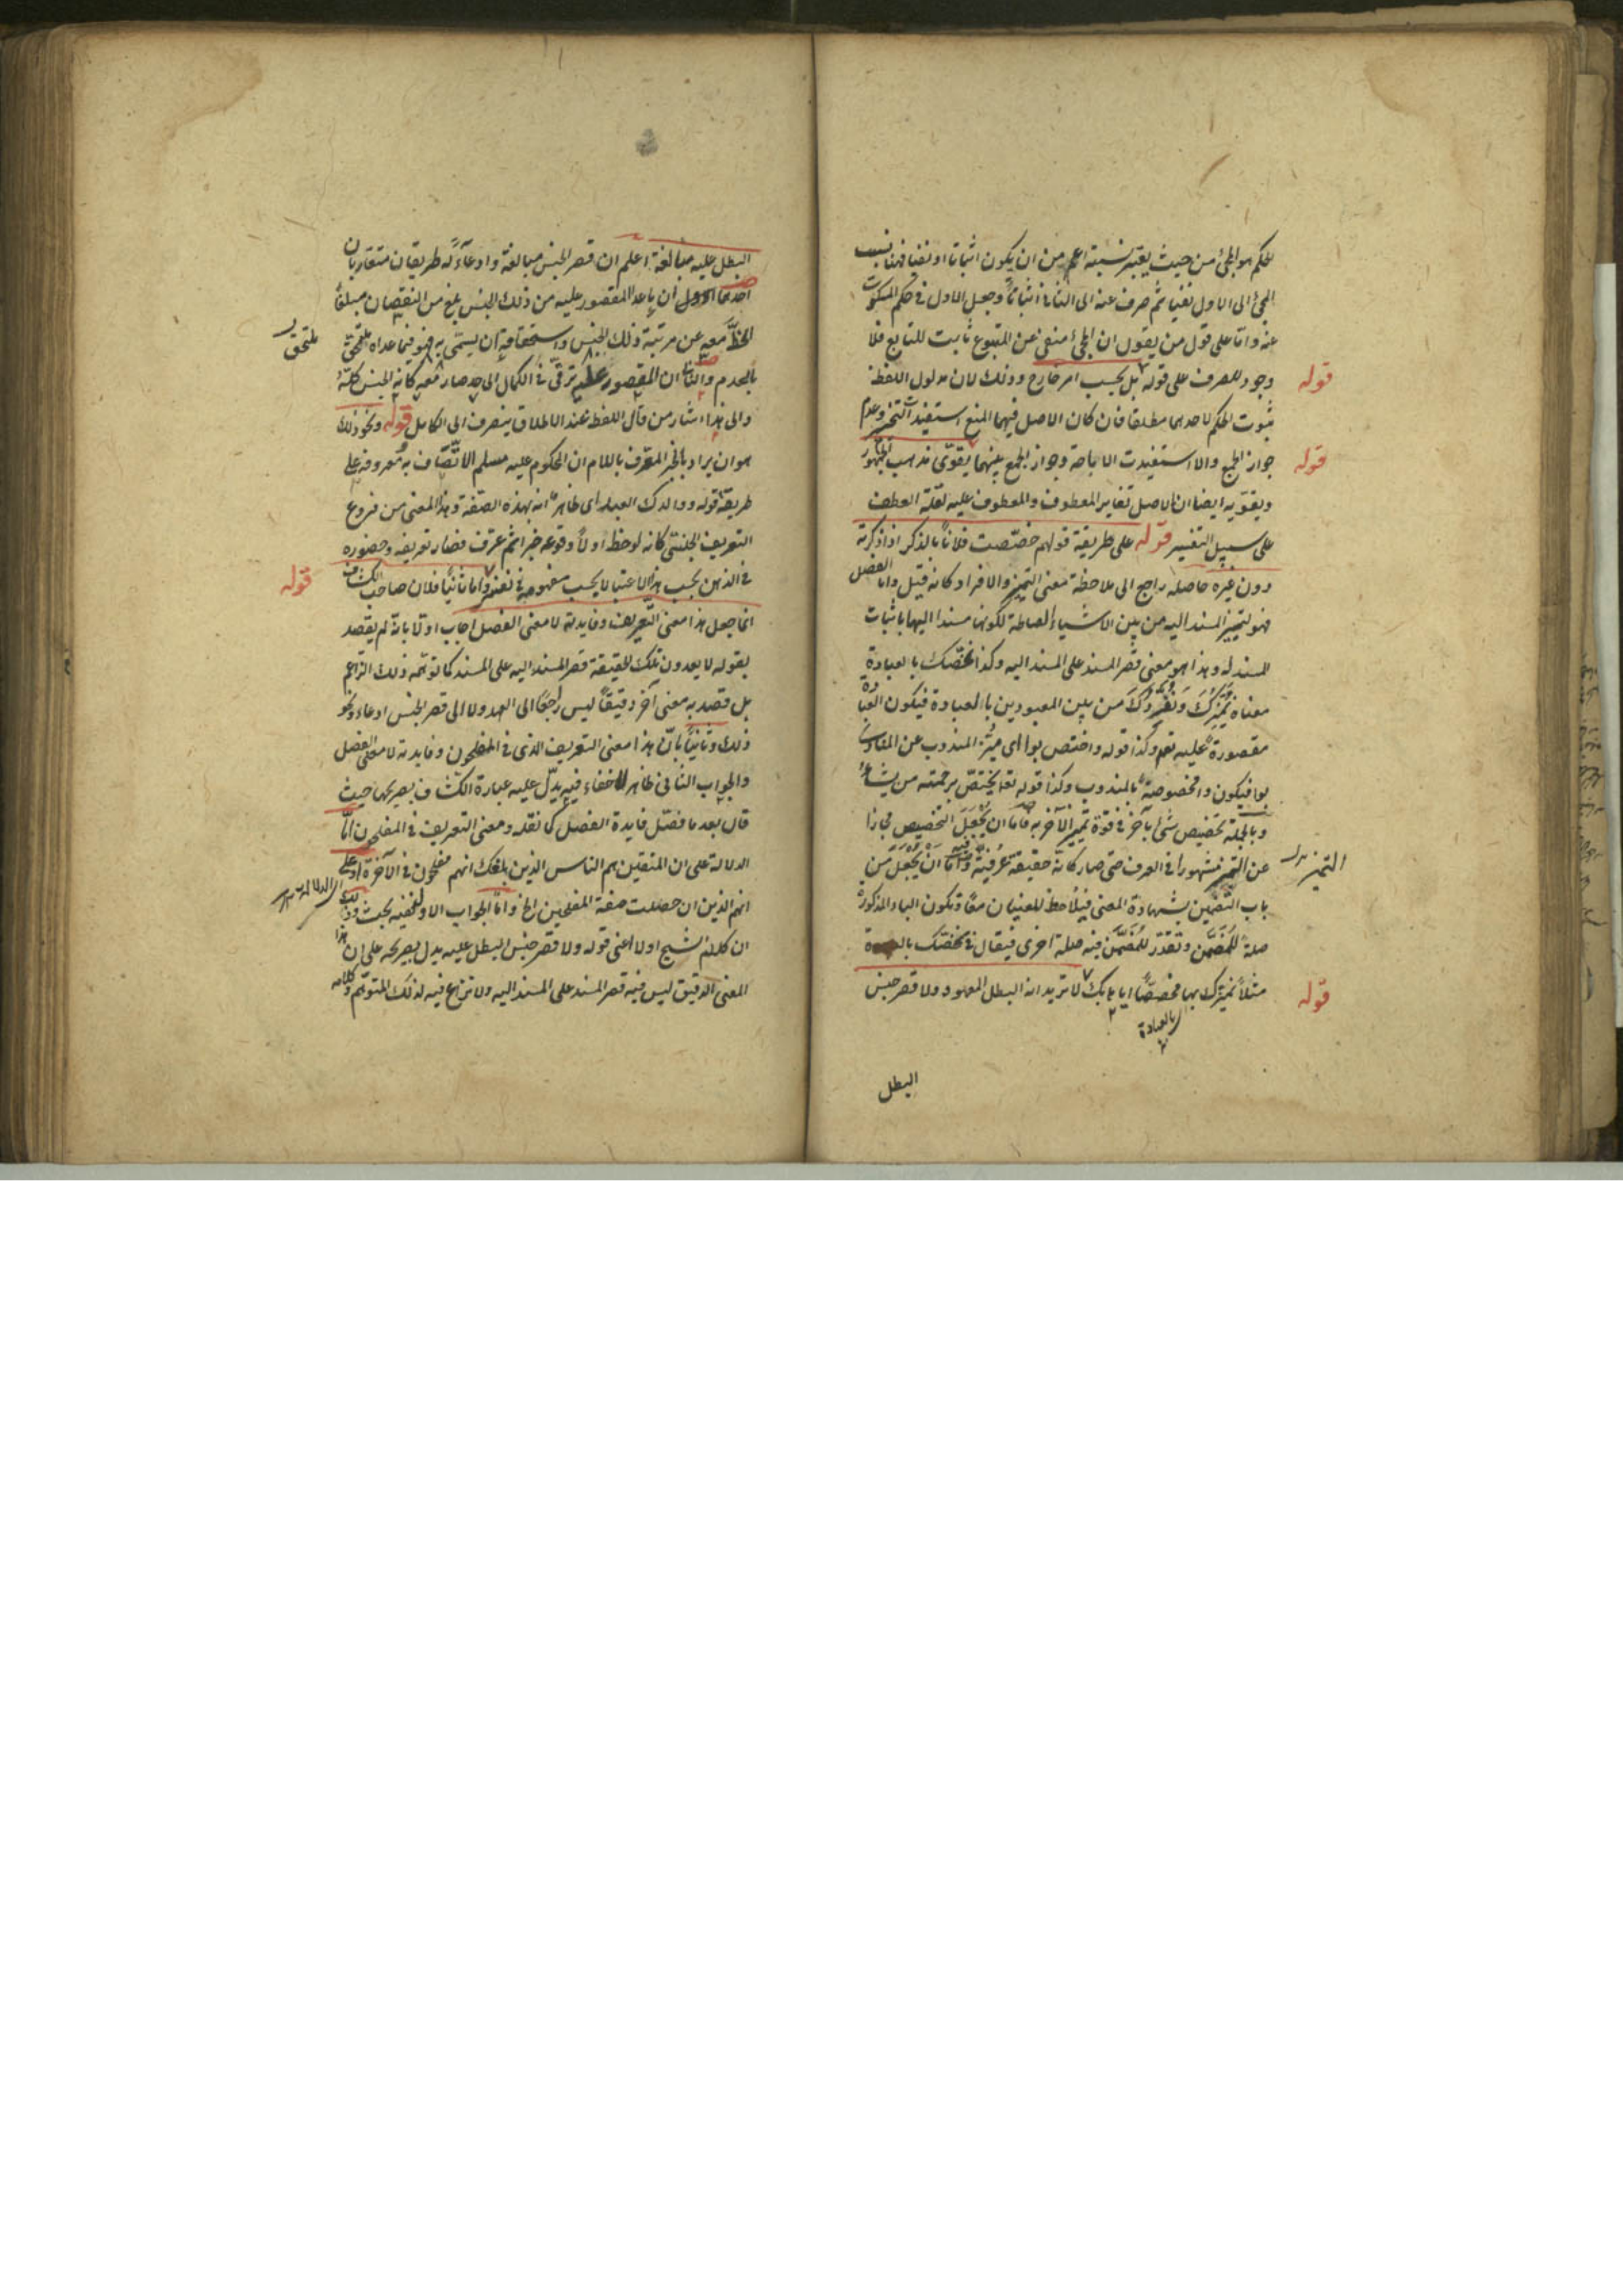 الحكم هو المجئ من حيث يعتبر نسبته اعم من ان يكون اثباتا او نفيا فهنا نسب
المجئ الى الاول نفيا ثم صرف عنه الى الثاني اثباتا وجعل الاول في حكم المسكوت
عنه واما على قول من يقول ان المجئ منفى عن المتبوع ثابت للتابع فلا
وجود للصرف على قوله بل بحسب امر خارج وذلك لان مدلول اللفظ
قوله
ثبوت الحكم لاحدهما مطلقا فان كان الاصل فيهما المنع استفيدت التخيير وعدم
جواز الجمع والا استفيدت الاباحة وجواز الجمع بينهما يقوى مذهب الجمهور
قوله
ويقويه ايضا ان الاصل تغاير المعطوف والمعطوف عليه لقلة العطف
على سبيل التفسير قوله على طريقة قولهم خصصت فلانا بالذكر اذا ذكرته
دون غيره حاصله راجع الى ملاحظة معنى التميز والافراد كانه قيل واما الفصل
فهو لتمييز المسند اليه من بين الاشياء الصالحة لكونها مسندا اليها باثبات
المسند له وهذا هو معنى قصر المسند على المسند اليه وكذا نخصك بالعبادة
معناه نميزك ونفردك من بين المعبودين بالعبادة فيكون العبادة
مقصورة عليه تعم وكذا قوله واختص بوا اى ميز المندوب عن المنادى
بوا فيكون وا مخصوصة بالمندوب وكذا قوله تعا يختص برحمته من يشاء
وبالجملة تخصيص شئ بآخر في قوة تمييز الآخر به فاما ان يجعل التخصيص مجازا
عن التميز مشهورا في العرف حتى صار كانه حقيقة عرفية واما ان يجعل من
التميز
باب التضمين بشهادة المعنى فيلاحظ المعنيان معا وتكون الباء المذكورة
صلة للمضمن وتقدر للمضمن فيه صلة اخرى فيقال في نخصك بالعبادة
مثلا نميزك بها مخصصا اياها بك لا تريد انه البطل المعهود ولا قصر جنس
قوله
بالعبادة
البطل
البطل عليه مبالغة اعلم ان قصر الجنس مبالغة وادعاء له طريقان متقاربان
احدهما الاول ان ماعدا المقصور عليه من ذلك الجنس بلغ من النقصان مبلغا
انحط معه عن مرتبة ذلك الجنس واستحقاقه ان يسمى به فهو فيما عداه ملتحق
ملتحق
بالعدم والثاني ان المقصور عليه ترقى في الكمال الى حد صار معه كانه الجنس كله
والى هذا اشار من قال اللفظ عند الاطلاق ينصرف الى الكامل قوله ونحو ذلك
هو ان يراد بالخبر المعرف باللام ان المحكوم عليه مسلم الاتصاف به معروفه على
طريقة قوله ووالدك العبد اى ظاهر انه بهذه الصفة وهذا المعنى من فروع
التعريف الجنسي كانه لوحظ اولا وقوعه خبرا ثم عرف فصار تعريفه وحضوره
في الذهن بحسب هذا الاعتبار لا بحسب مفهومه في نفسه واما ثانيا فلان صاحب الكشاف
قوله
انما جعل هذا معنى التعريف وفايدته لا معنى الفصل اجاب اولا بانه لم يقصد
بقوله لا يعدون تلك الحقيقة قصر المسند اليه على المسند كما توهمه ذلك الزاعم
بل قصد به معنى آخر دقيقا ليس راجعا الى العهد ولا الى قصر الجنس ادعاء ونحو
ذلك وثانيا بان هذا معنى التعريف الذى في المفلحون وفايدته لا معنى الفصل
والجواب الثاني ظاهر لا خفاء فيه يدل عليه عبارة الكشاف بصريحها حيث
قال بعد ما فصل فايدة الفصل كما نقله ومعنى التعريف في المفلحون اما
الدلالة على ان المتقين هم الناس الذين بلغك انهم مفلحون في الآخرة او على
انهم الذين ان حصلت صفة المفلحين الخ واما الجواب الاول ففيه بحث وذلك
ان كلام الشيخ اولا اعنى قوله ولا قصر جنس البطل عليه يدل بصريحه على ان هذا
المعنى الدقيق ليس فيه قصر المسند على المسند اليه ولا نزاع فيه لذلك المتوهم وكلامه